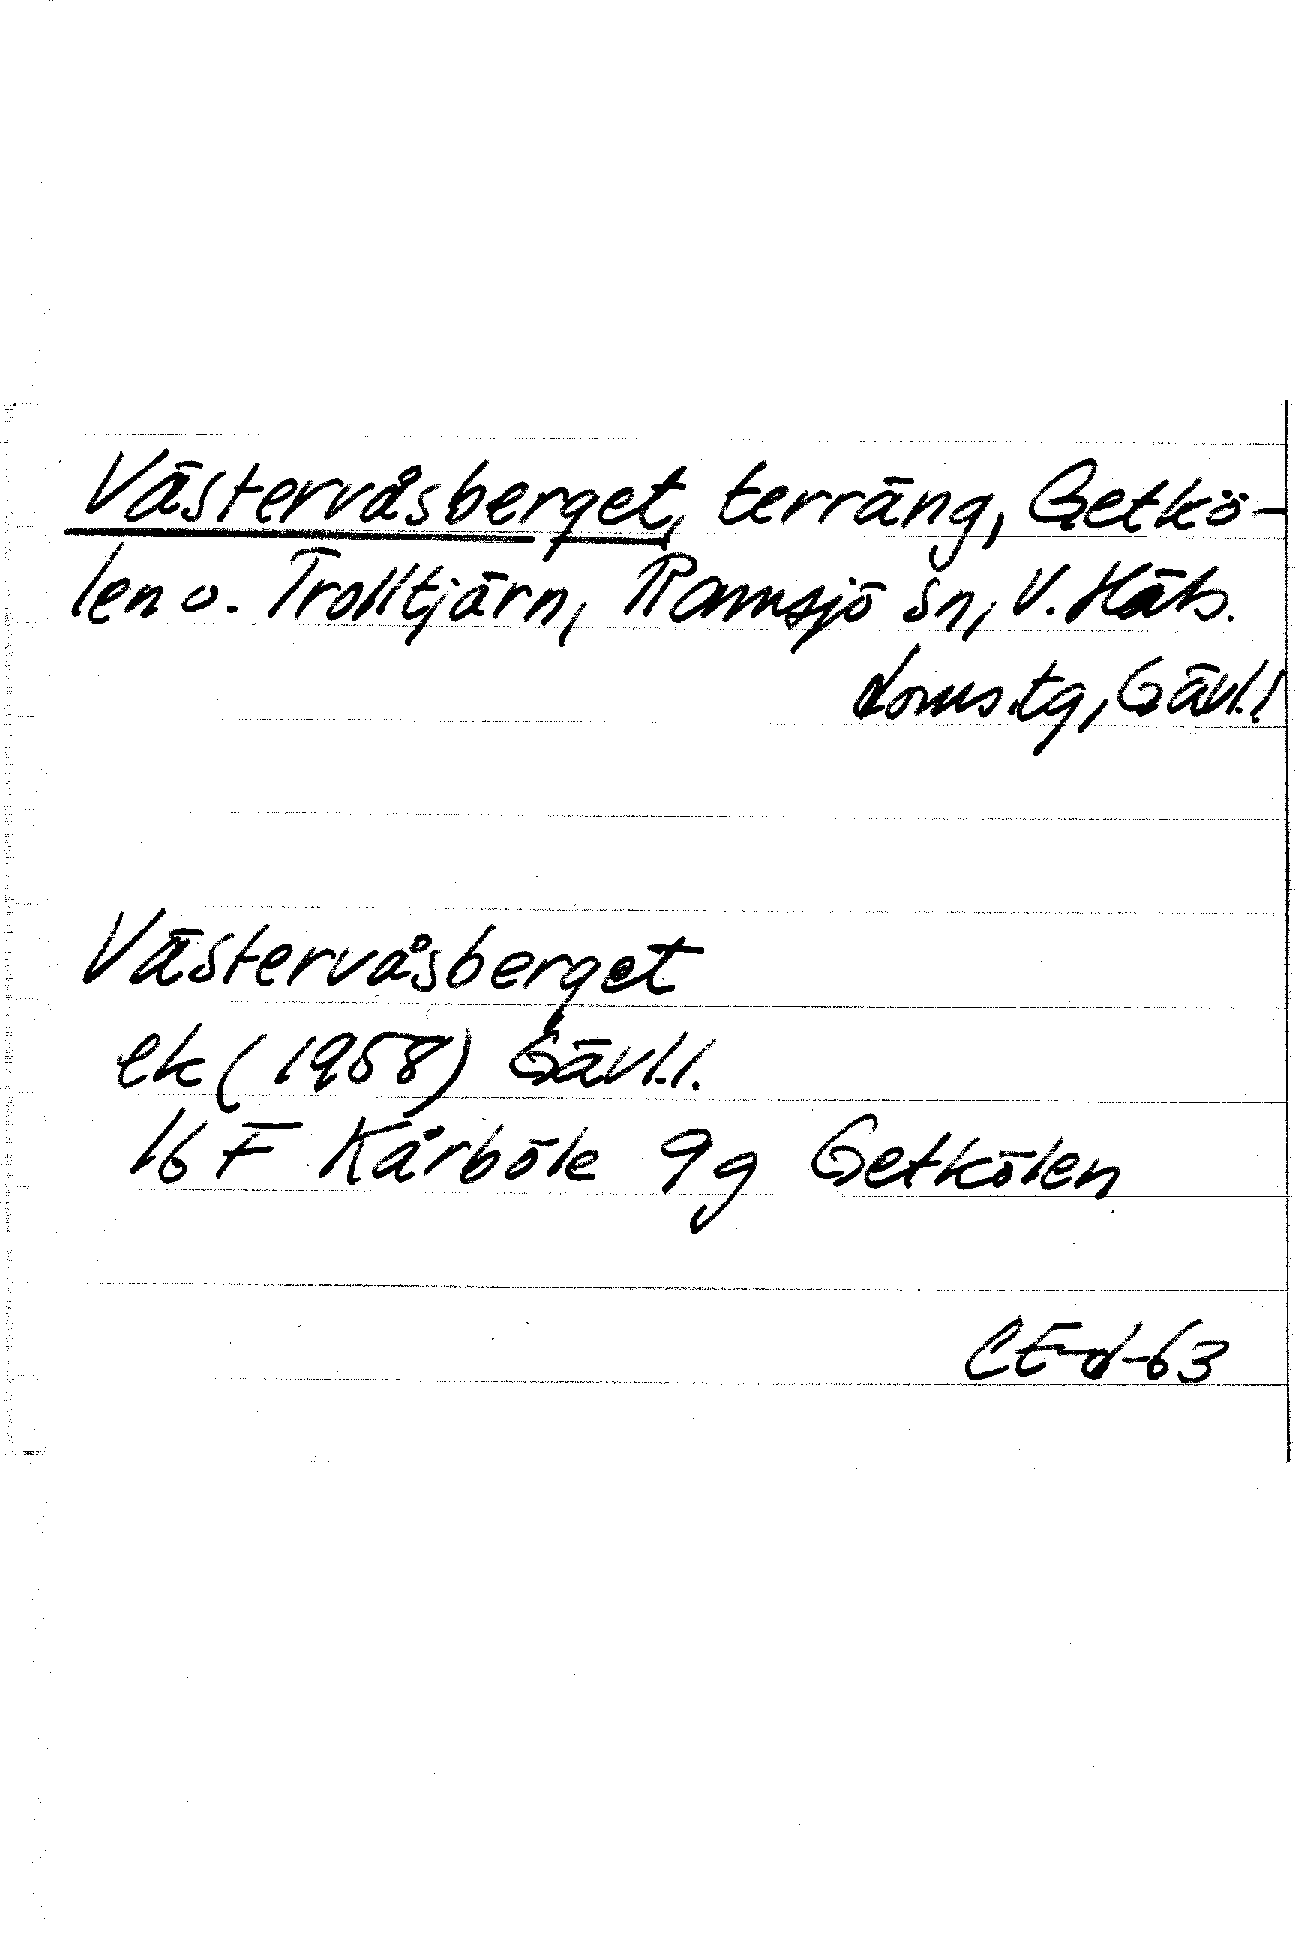 Västervåsberget, terräng, Getkö-
len o. Trolltjärn, Ramsjö sn, V. Häls.
doms.tg, Gävl.l
Västervåsberget
ek (1958) Gävl.l.
16 F Kårböle 9g Getkölen
CE-d-63